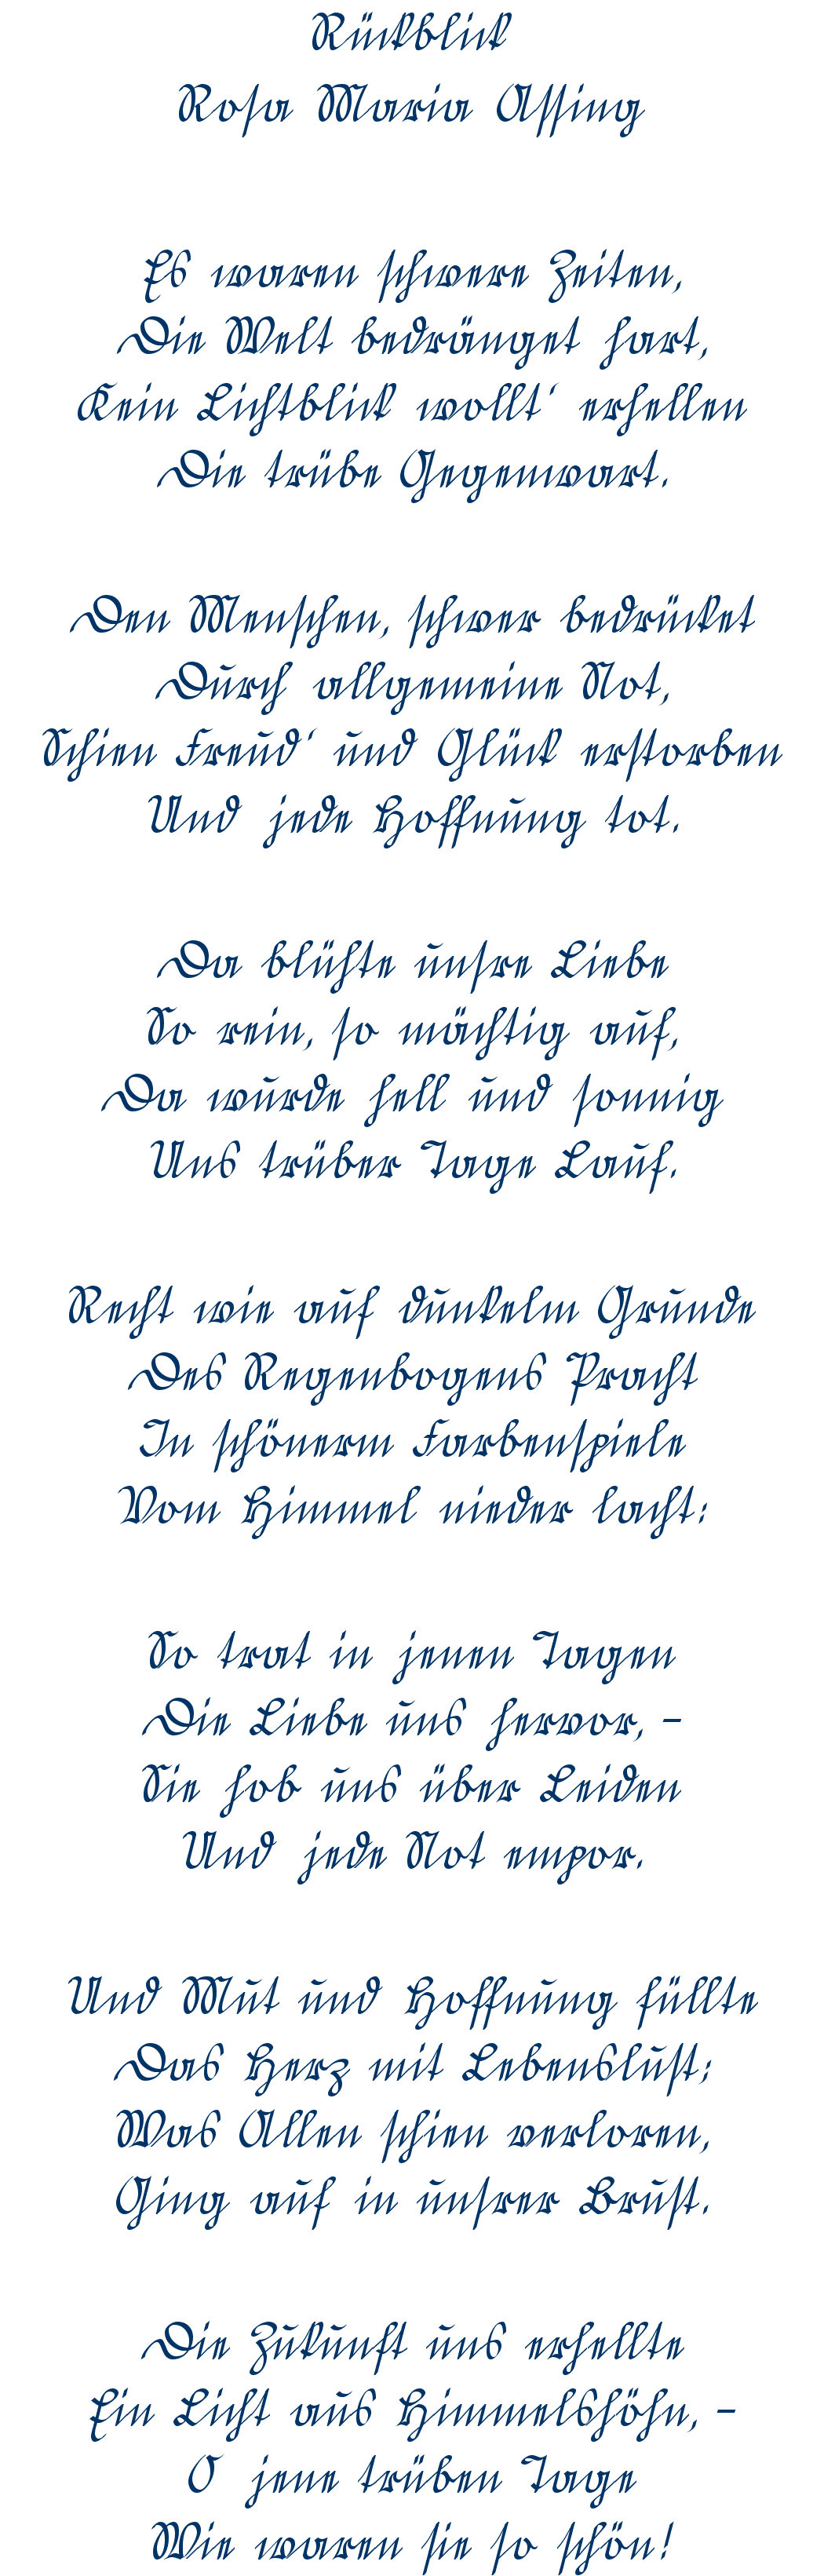 Rückblick
Rosa Maria Assing
Es waren schwere Zeiten,
Die Welt bedränget hart,
Kein Lichtblick wollt' erhellen
Die trübe Gegenwart.
Den Menschen, schwer bedrücket
Durch allgemeine Not,
Schien Freud' und Glück erstorben
Und jede Hoffnung tot.
Da blühte unsre Liebe
So rein, so mächtig auf,
Da wurde hell und sonnig
Uns trüber Tage Lauf.
Recht wie auf dunkelm Grunde
Des Regenbogens Pracht
In schönerm Farbenspiele
Vom Himmel nieder lacht:
So trat in jenen Tagen
Die Liebe uns hervor, –
Sie hob uns über Leiden
Und jede Not empor.
Und Mut und Hoffnung füllte
Das Herz mit Lebenslust;
Was Allen schien verloren,
Ging auf in unsrer Brust.
Die Zukunft uns erhellte
Ein Licht aus Himmelshöhn, –
O jene trüben Tage
Wie waren sie so schön!